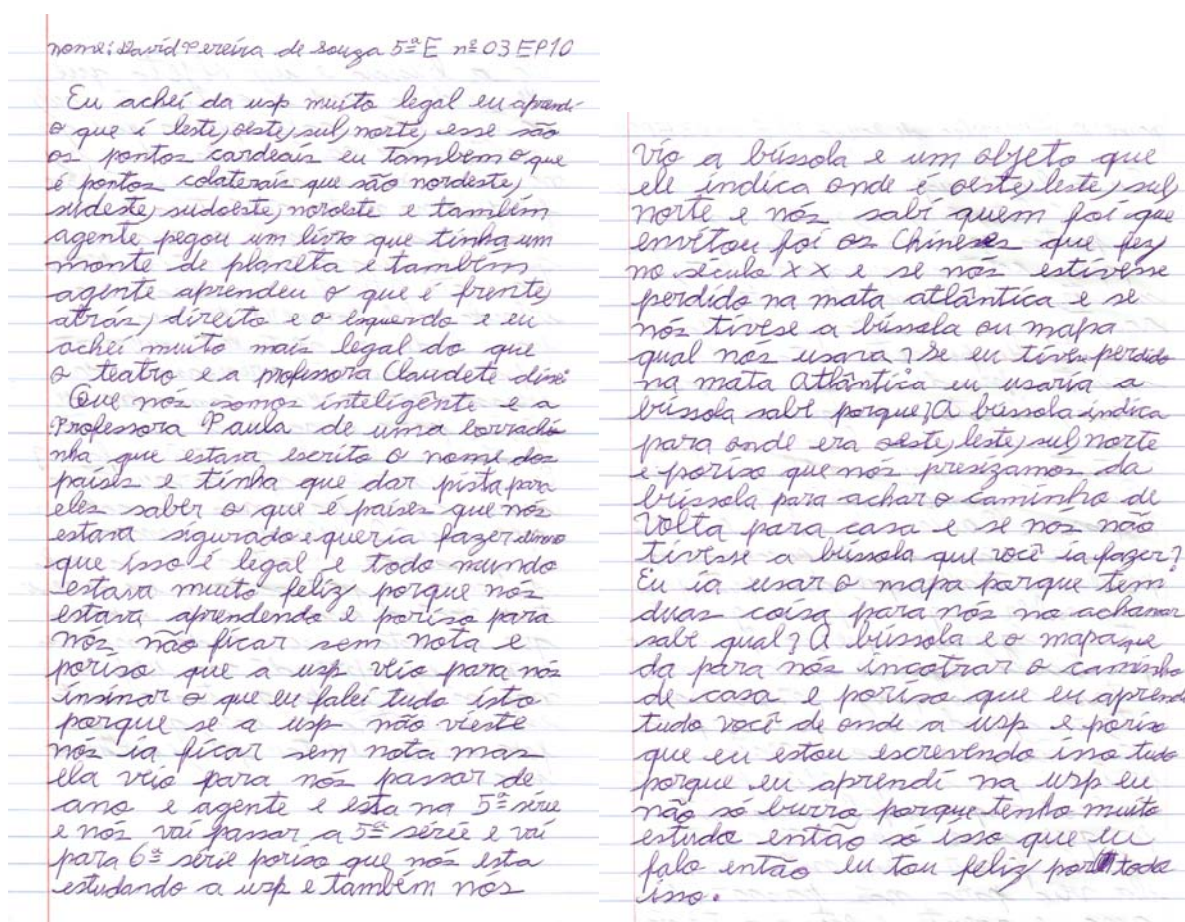 nome: David Pereira de Souza 5ª E nº 03 EP10
Eu achei da usp muito legal eu aprendi
o que é leste, oeste, sul, norte, esse são
os pontos cardeais eu também o que
é pontos colaterais que são nordeste,
sudeste, sudoeste, noroeste e também
agente pegou um livro que tinha um
monte de planeta e também
agente aprendeu o que é frente,
atrás, direito e o esquerdo e eu
achei muito mais legal do que
o teatro e a professora Claudete disse
Que nós somos inteligênte e a
Professora Paula de uma borrachi
nha que estava escrito o nome dos
países e tinha que dar pista para
eles saber o que é países que nós
estava sigurado e queria fazer
que isso é legal e todo mundo
estava muito feliz porque nós
estava aprendendo e poriso para
nós não ficar sem nota e
poriso que a usp veio para nós
insinar o que eu falei tudo isto
porque se a usp não vieste
nós ia ficar sem nota mas
ela veio para nós passar de
ano e agente e esta na 5ª série
e nós vai passar a 5ª série e vai
para 6ª série poriso que nós esta
estudando a usp e também nós
vio a bússola e um objeto que
ele indica onde é oeste, leste, sul,
norte e nós sabi quem foi que
envitou foi os Chineses que fez
no século XX e se nós estivesse
perdido na mata atlântica e se
nós tivese a bússola ou mapa
qual nós usara? Se eu tiver perdido
na mata Atlântica eu usaria a
bússola sabe porque? A bússola indica
para onde era oeste, leste, sul norte
e poriso que nós presizamos da
brússola para achar o caminho de
Volta para casa e se nós não
tivesse a bússola que você ia fazer?
Eu ia usar o mapa porque tem
duas coisa para nós no achamar
sabe qual? A bússola e o mapa que
da para nós incotrar o caminho
de casa e poriso que eu aprendi
tudo você de onde a usp e poriso
que eu estou escrevendo isso tudo
porque eu aprendi na usp eu
não só burro porque tenho muito
estudo então só isso que eu
falo então eu tou feliz por todo
isso.